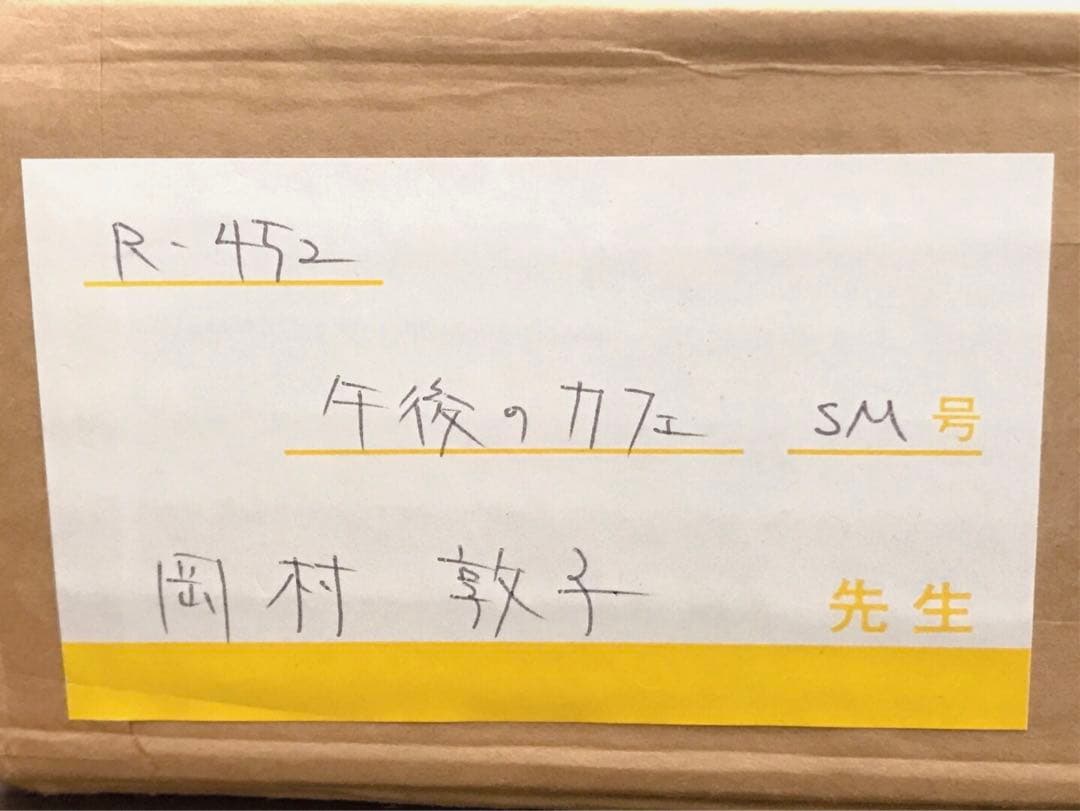 R-452
午後のカフェ SM号
岡村 敦子 先生